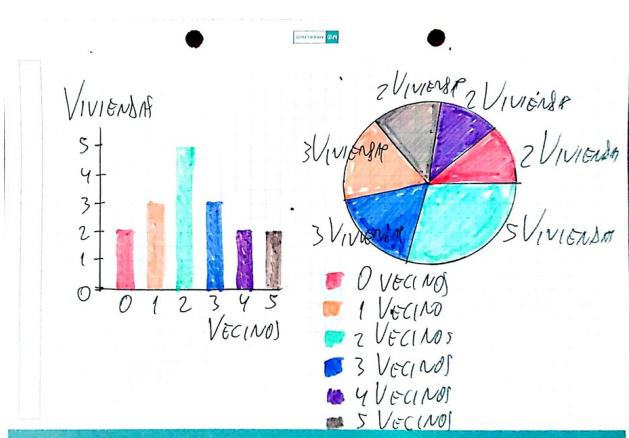 VIVIENDAS
5
4
3
2
1
0
0 1 2 3 4 5
VECINOS
2 VIVIENDAS
2 VIVIENDAS
3 VIVIENDAS
2 VIVIENDAS
3 VIVIENDAS
5 VIVIENDAS
0 VECINOS
1 VECINO
2 VECINOS
3 VECINOS
4 VECINOS
5 VECINOS